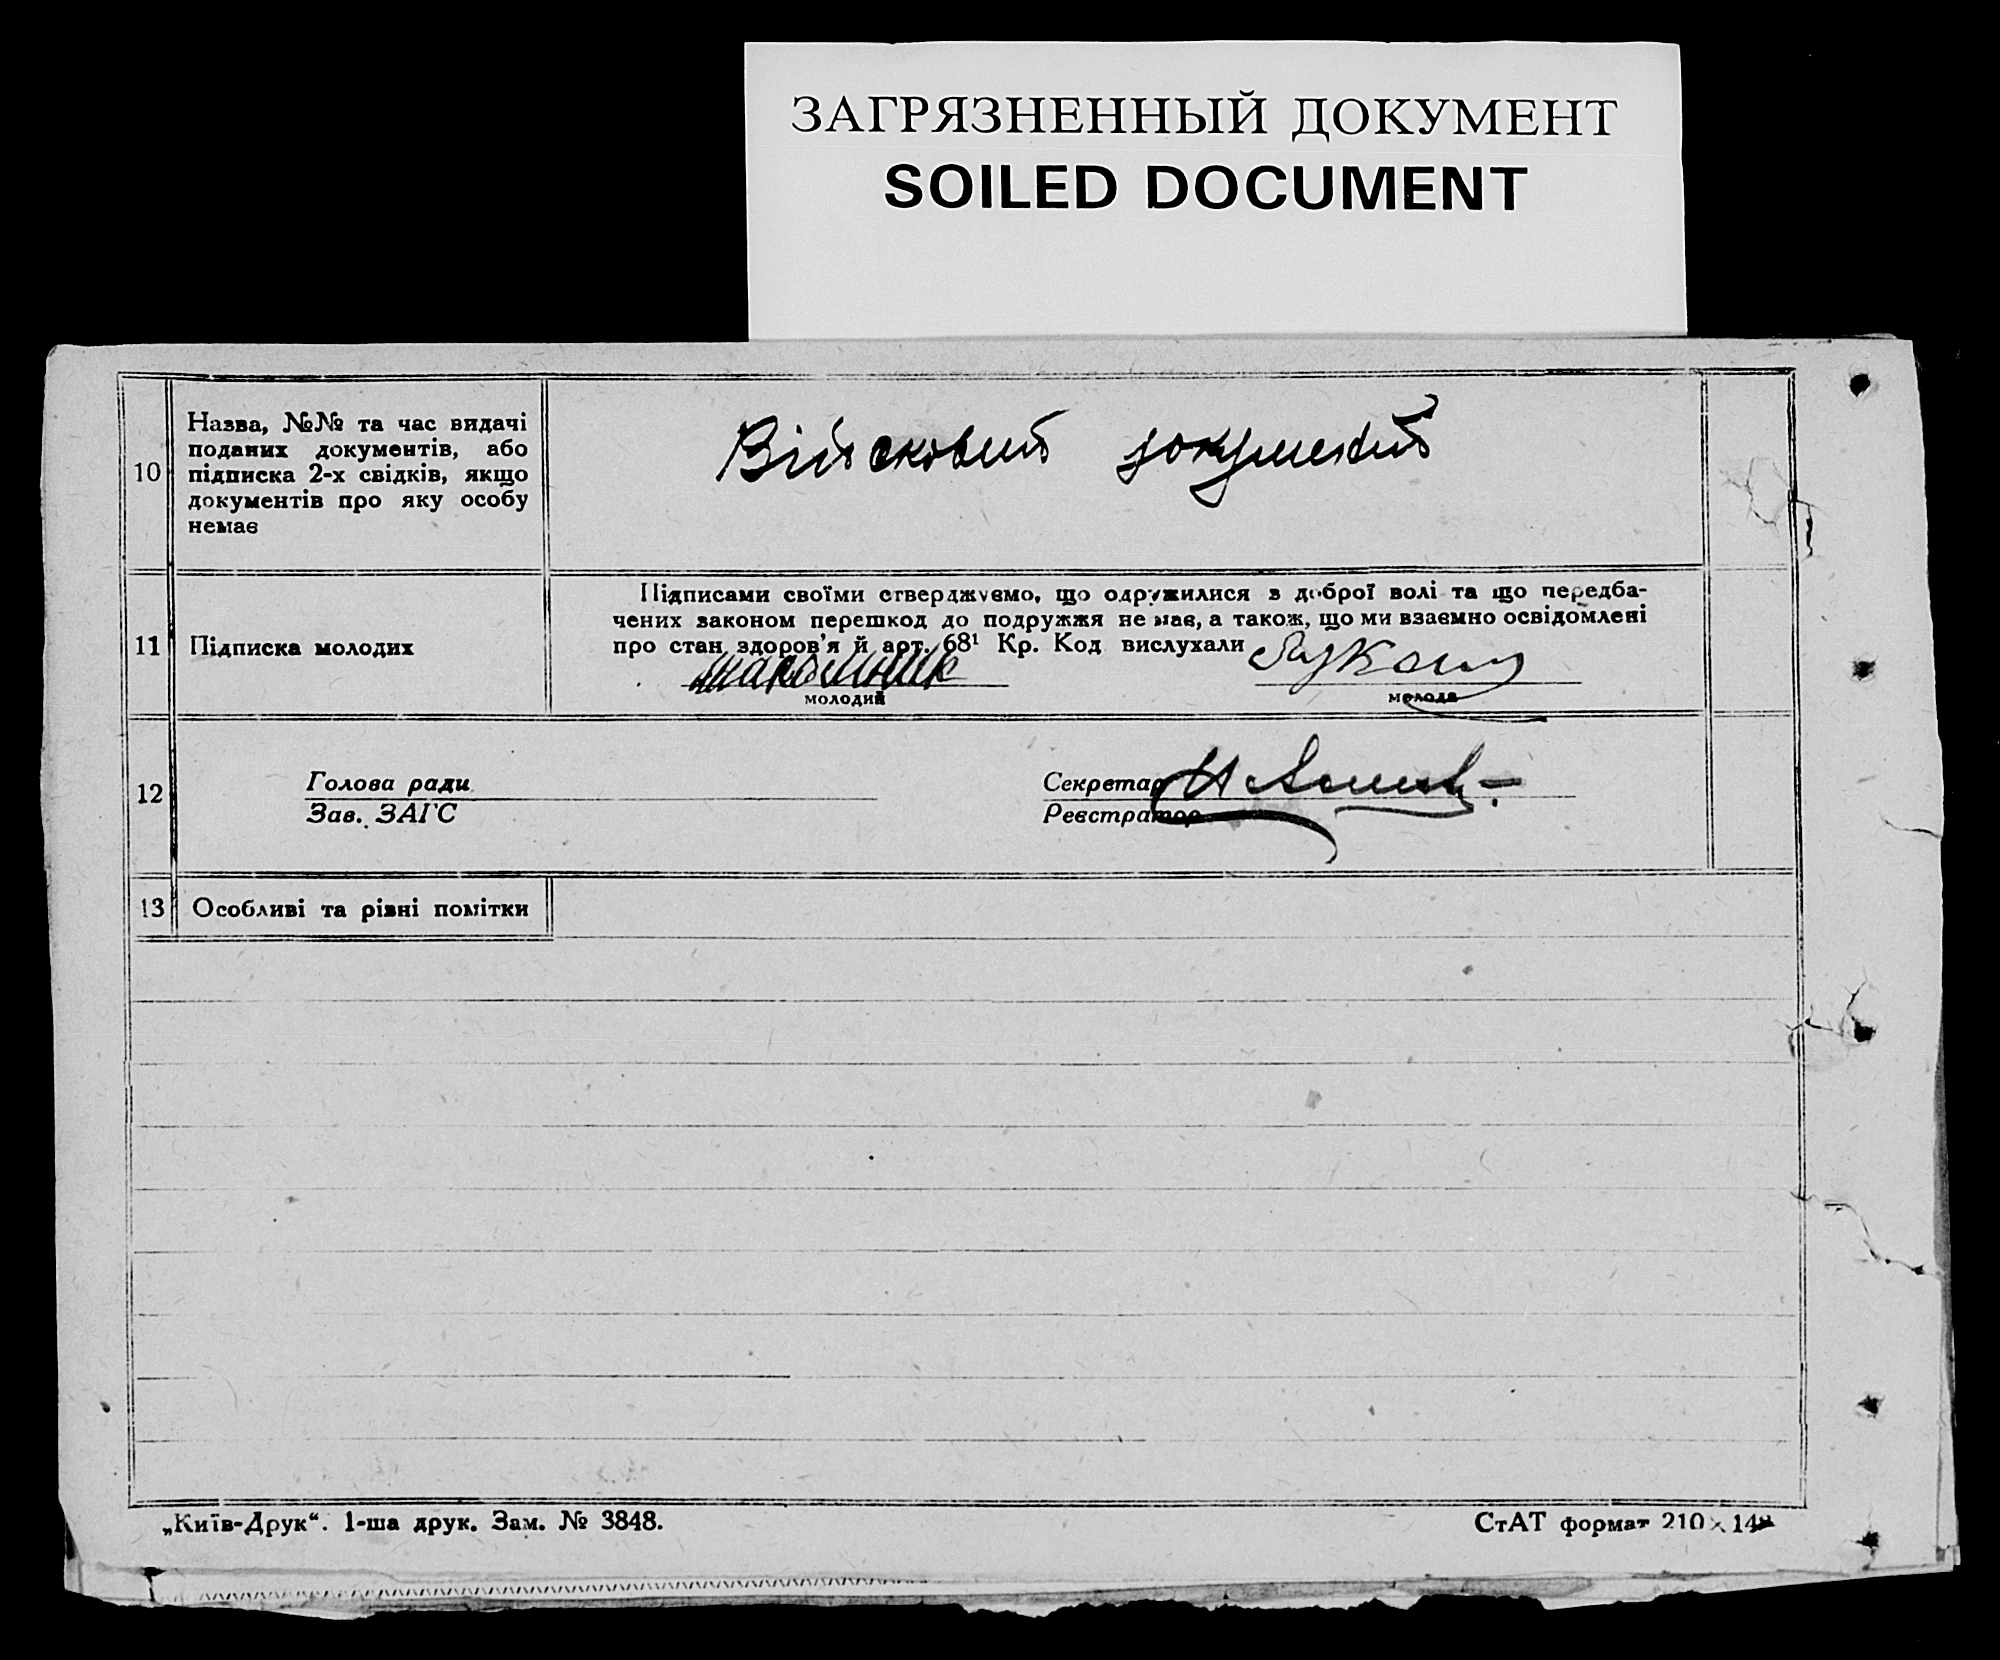 ЗАГРЯЗНЕННЫЙ ДОКУМЕНТ
SOILED DOCUMENT
10
Назва, №№ та час видачі
поданих документів, або
підписка 2-х свідків, якщо
документів про яку особу
немає
Війсковий документ
11
Підписка молодих
Підписами своїми стверджуємо, що одружилися з доброї волі та що передба-
чених законом перешкод до подружжя не має, а також, що ми взаємно освідомлені
про стан здоров'я й арт. 68¹ Кр. Код вислухали
молодий
молода
12
Голова ради
Зав. ЗАГС
Секретар
Реєстратор
13
Особливі та різні помітки
„Київ-Друк“. 1-ша друк. Зам. № 3848.
СтАТ формат 210×148